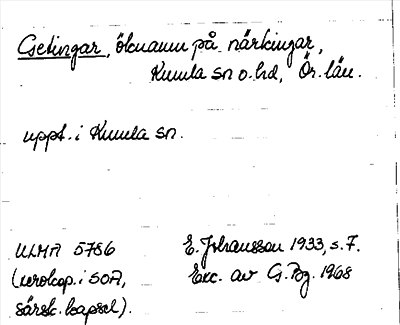 Csetingar, öknamn på närkingar,
Kumla sn o. hd, Ör. län.
uppt. i Kumla sn.
ULMA 5786 E. Johansson 1933, s. 7.
(xerokop. i SOA, Exc. av G. Bg. 1968
särsk. kapsel).